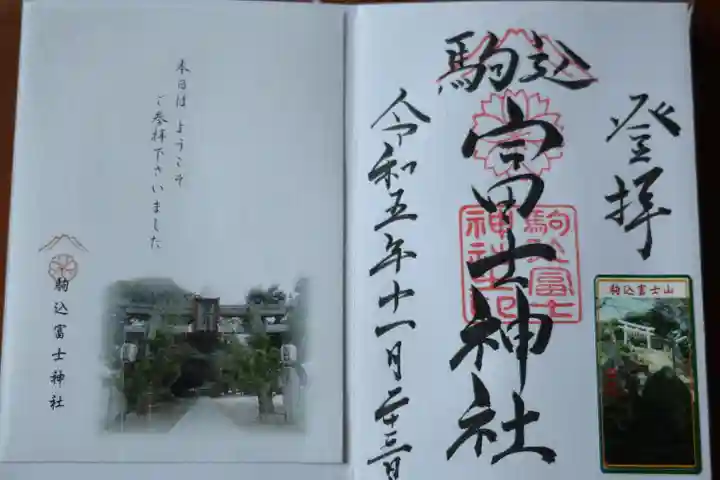 本日は ようこそ
ご参拝下さいました
駒込富士神社
登拝
駒込
富士神社
令和五年十一月二十三日
駒込富士
神社印
駒込富士山